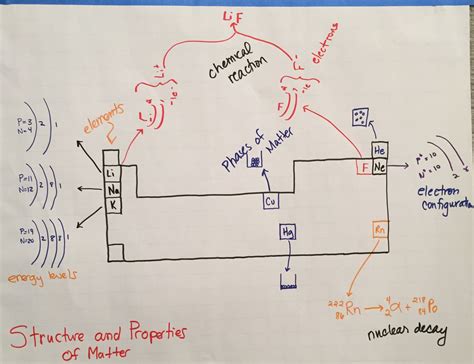 LiF
chemical
reaction
electrons
Li
Li
-1e-
F
F
-1e-
elements
Phases of
Matter
P=3
N=4
2
1
P=11
N=12
2
8
1
P=19
N=20
2
8
8
1
energy levels
Li
Na
K
Cu
Hg
He
F
Ne
Rn
P+=10
N°=10
2
8
electron
configurat
222
86
Rn → 4
2
α + 218
84
Po
nuclear decay
Structure and Properties
of Matter